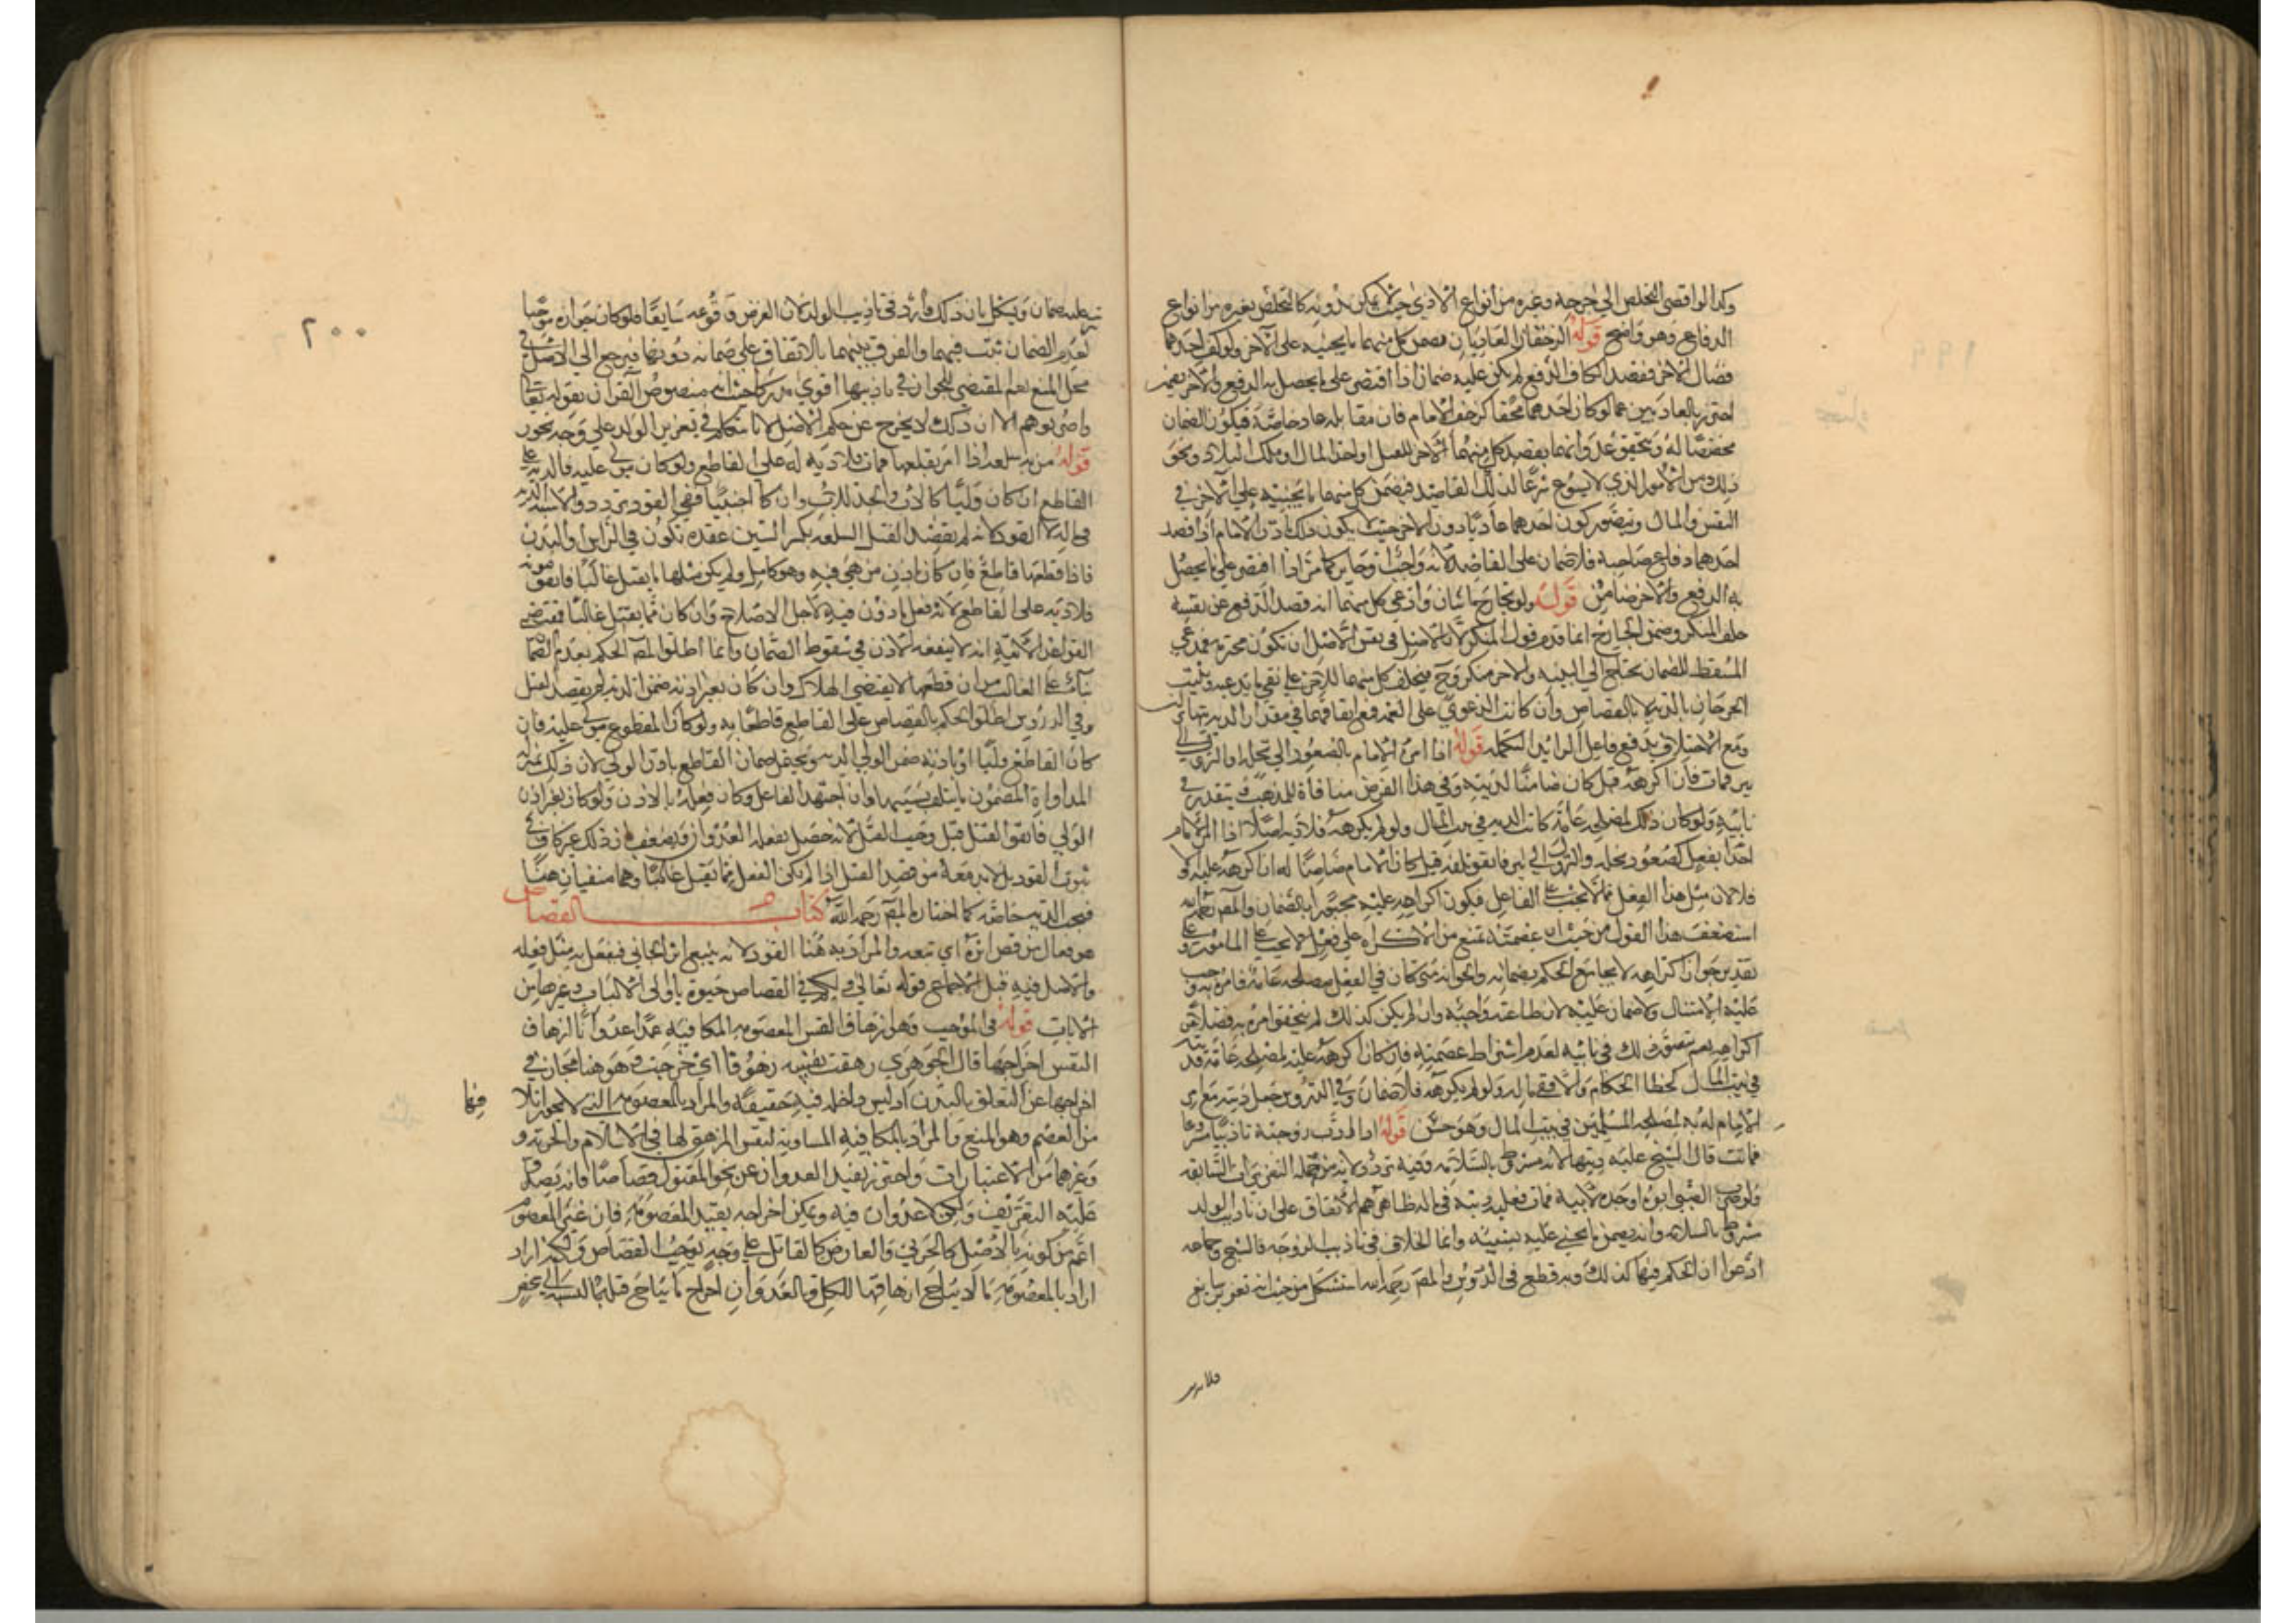 وكذا لو افتقر التخلص الى جرحه وغيره من انواع الاذى حيث لا يمكن بدونه كالتخلص بغيره من انواع
الدفاع وهو واضح قوله الزحفان العاديان يضمن كل منهما ما يجنيه على الآخر ولو كف احدهما
فصال الآخر فقصد الكاف الدفع لم يكن عليه ضمان اذا اقتصر على ما يحصل به الدفع والآخر يضمن
احترز بالعاديين عما لو كان احدهما محقا كزحف الامام فان مقابله عاد خاصة فيكون الضمان
مختصا له ويتحقق عدوانهما بقصد كل منهما الآخر للقتل او اخذ المال او ملك البلاد ونحو
ذلك من الامور الذي لا يسوغ شرعا لذلك القاصد فيضمن كل منهما ما يجنيه على الآخر في
النفس والمال ويتصور كون احدهما عاديا دون الآخر حيث لا يكون ذلك باذن الامام اذا قصد
احدهما دفاع صاحبه فلا ضمان على القاصد لانه واجب او جايز كما مر اذا اقتصر على ما يحصل
به الدفع والآخر ضامن قوله ولو تجارح اثنان وادعى كل منهما انه قصد الدفع عن نفسه
حلف المنكر وضمن الجارح انما قدم قول المنكر لان الاصل في نفس الاصل ان تكون محترمة فمدعي
المسقط للضمان يحتاج الى البينة والآخر منكر وح فيحلف كل منهما للآخر على نفي ما يدعيه ويثبت
الجرحان بالدية لا بالقصاص وان كانت الدعوى على العمد فمع اتفاقهما في مقدار الدية يتهاتران
ومع الاختلاف يدفع فاعل الزائد التكملة قوله اذا امره الامام بالصعود الى نخلة او النزول الى
بير فمات فان اكرهه قيل كان ضامنا لديته وفي هذا الفرض منافاة للمذهب ويتقدر في
نايبه ولو كان ذلك لمصلحة عامة كانت الدية في بيت المال ولو لم يكرهه فلا دية اصلا اذا امر الامام
احدا بفعل كصعود نخلة والنزول الى بير فاتفق تلفه قيل كان الامام ضامنا له ان اكرهه عليه والا
فلا لان مثل هذا الفعل مما لا يجب على الفاعل فيكون اكراهه عليه مجبورا بالضمان والمصنف رحمه الله
استضعف هذا القول من حيث ان عصمته تمنع من الاكراه على فعل لا يجب على المامور و
تقدير جواز اكراهه لا يجامع الحكم بضمانه والجواز متى كان في الفعل مصلحة عامة فامر به وجب
عليه الامتثال ولا ضمان عليه لان طاعته واجبة وان لم يكن كذلك لم يتحقق امره به فضلا عن
اكراهه نعم يتصور ذلك في نائبه لعدم اشتراط عصمته فان كان اكرهه عليه لمصلحة عامة فديته
في بيت المال كخطا الحكام والا ففي ماله ولو لم يكرهه فلا ضمان وفي الدروس جعل ديته مع امر
الامام له به لمصلحة المسلمين في بيت المال وهو حسن قوله اذا ادب زوجته تاديبا مشروعا
فماتت قال الشيخ عليه ديتها لانه مشروط بالسلامة وفيه تردد لانه من جملة التعزيرات السائغة
ولو ضرب الصبي ابوه او جده لابيه فمات فعليه ديته في ماله ظاهرهم الاتفاق على ان تاديب الولد
مشروط بالسلامة وانه يضمن ما يجني عليه بسببه وانما الخلاف في تاديب الزوجة فالشيخ وجماعة
ادعوا ان الحكم فيها كذلك وبه قطع في الدروس والمصنف رحمه الله استشكل من حيث انه تعزير سايغ
فلا يترتب
عليه ضمان ويشكل بان ذلك وارد في تاديب الولد لان الغرض وقوعه سايغا فلو كان جوازه موجبا
لعدم الضمان ثبت فيهما والفرق بينهما بالاتفاق على ضمانه دونها فيرجع الى الاصل في
محل المنع نعم المقتضي للجواز في تاديبها اقوى مدركا حيث انه منصوص القرآن بقوله تعالى
واضربوهم الا ان ذلك لا يخرج عن حكم الاصل لانا نتكلم في تعزير الولد على وجه يجوز
قوله من به سلعة اذا امر بقطعها فمات فلا دية له على القاطع ولو كان مولى عليه فالدية على
القاطع ان كان وليا كالاب والجد للاب وان كان اجنبيا ففي القود تردد والاشبه الدية
في ماله لا القود لانه لم يقصد القتل السلعة بكسر السين عقدة تكون في الراس او البدن
فاذا قطعها قاطع فان كان باذن من هي فيه وهو كامل ولم يكن مثلها ما يقتل غالبا فاتفق موته
فلا دية على القاطع لانه فعل ماذون فيه لاجل الاصلاح وان كان مما يقتل غالبا فمقتضى
القواعد الآتية انه لا ينفعه الاذن في سقوط الضمان وانما اطلق المصنف الحكم بعدم الضمان
بناء على الغالب من ان قطعها لا يقتضي الهلاك وان كان بغير اذنه ضمن الدية لم يقصد القتل
وفي الدروس اطلق الحكم بالقصاص على القاطع قاطعا به ولو كان المقطوع مولى عليه فان
كان القاطع وليا او باذنه ضمن الولي الدية ويحتمل ضمان القاطع باذن الولي لان ذلك بمنزلة
المداواة المضمون ما يتلف بسببها وان اجتهد الفاعل وكان فعله بالاذن ولو كان بغير اذن
الولي فاتفق القتل قيل وجب القتل لانه حصل بفعله العدوان ويضعف بان ذلك غير كاف في
ثبوت القود بل لا بد معه من قصد القتل ان لم يكن الفعل مما يقتل غالبا وهما منفيان هنا
فيجب الدية خاصة كما اختاره المصنف رحمه الله كتاب القصاص
هو فعال من قص اثره اي تبعه والمراد به هنا القود لانه يتبع اثر الجاني فيفعل به مثل فعله
والاصل فيه قبل الاجماع قوله تعالى ولكم في القصاص حيوة يا اولى الالباب وغيرها من
الايات قوله في الموجب وهو ازهاق النفس المعصومة المكافية عمدا عدوانا ازهاق
النفس اخراجها قال الجوهري زهقت نفسه زهوقا اي خرجت وهو هنا مجاز في
اخراجها عن التعلق بالبدن اذ ليس داخله فيه حقيقة والمراد بالمعصومة التي لا يجوز اتلافها
من العصم وهو المنع والمراد بالمكافية المساوية لنفس المزهق لها في الاسلام والحرية و
وغيرهما من الاعتبارات واحترز بقيد العدوان عن نحو المقتول قصاصا فانه يصدق
عليه التعريف ولكن لا عدوان فيه ويمكن اخراجه بقيد المعصومة فان غير المعصوم
اعم من كونه بالاصل كالحربي والعارض كالقاتل على وجه يوجب القصاص ولكنه اراد
اراد بالمعصومة ما لا يباح ازهاقها للكل وبالعدوان اخراج ما يباح قتلها بالنسبة الى شخص
٢٠٠